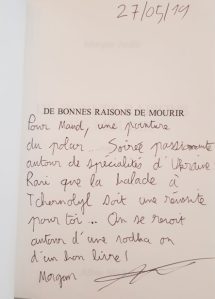 27/05/19
DE BONNES RAISONS DE MOURIR
Pour Maud, une pointure
du polar... Soirée passionnante
autour de spécialités d'Ukraine
Ravi que la balade à
Tchernobyl soit une réussite
pour toi... On se revoit
autour d'une vodka ou
d'un bon livre !
Morgan